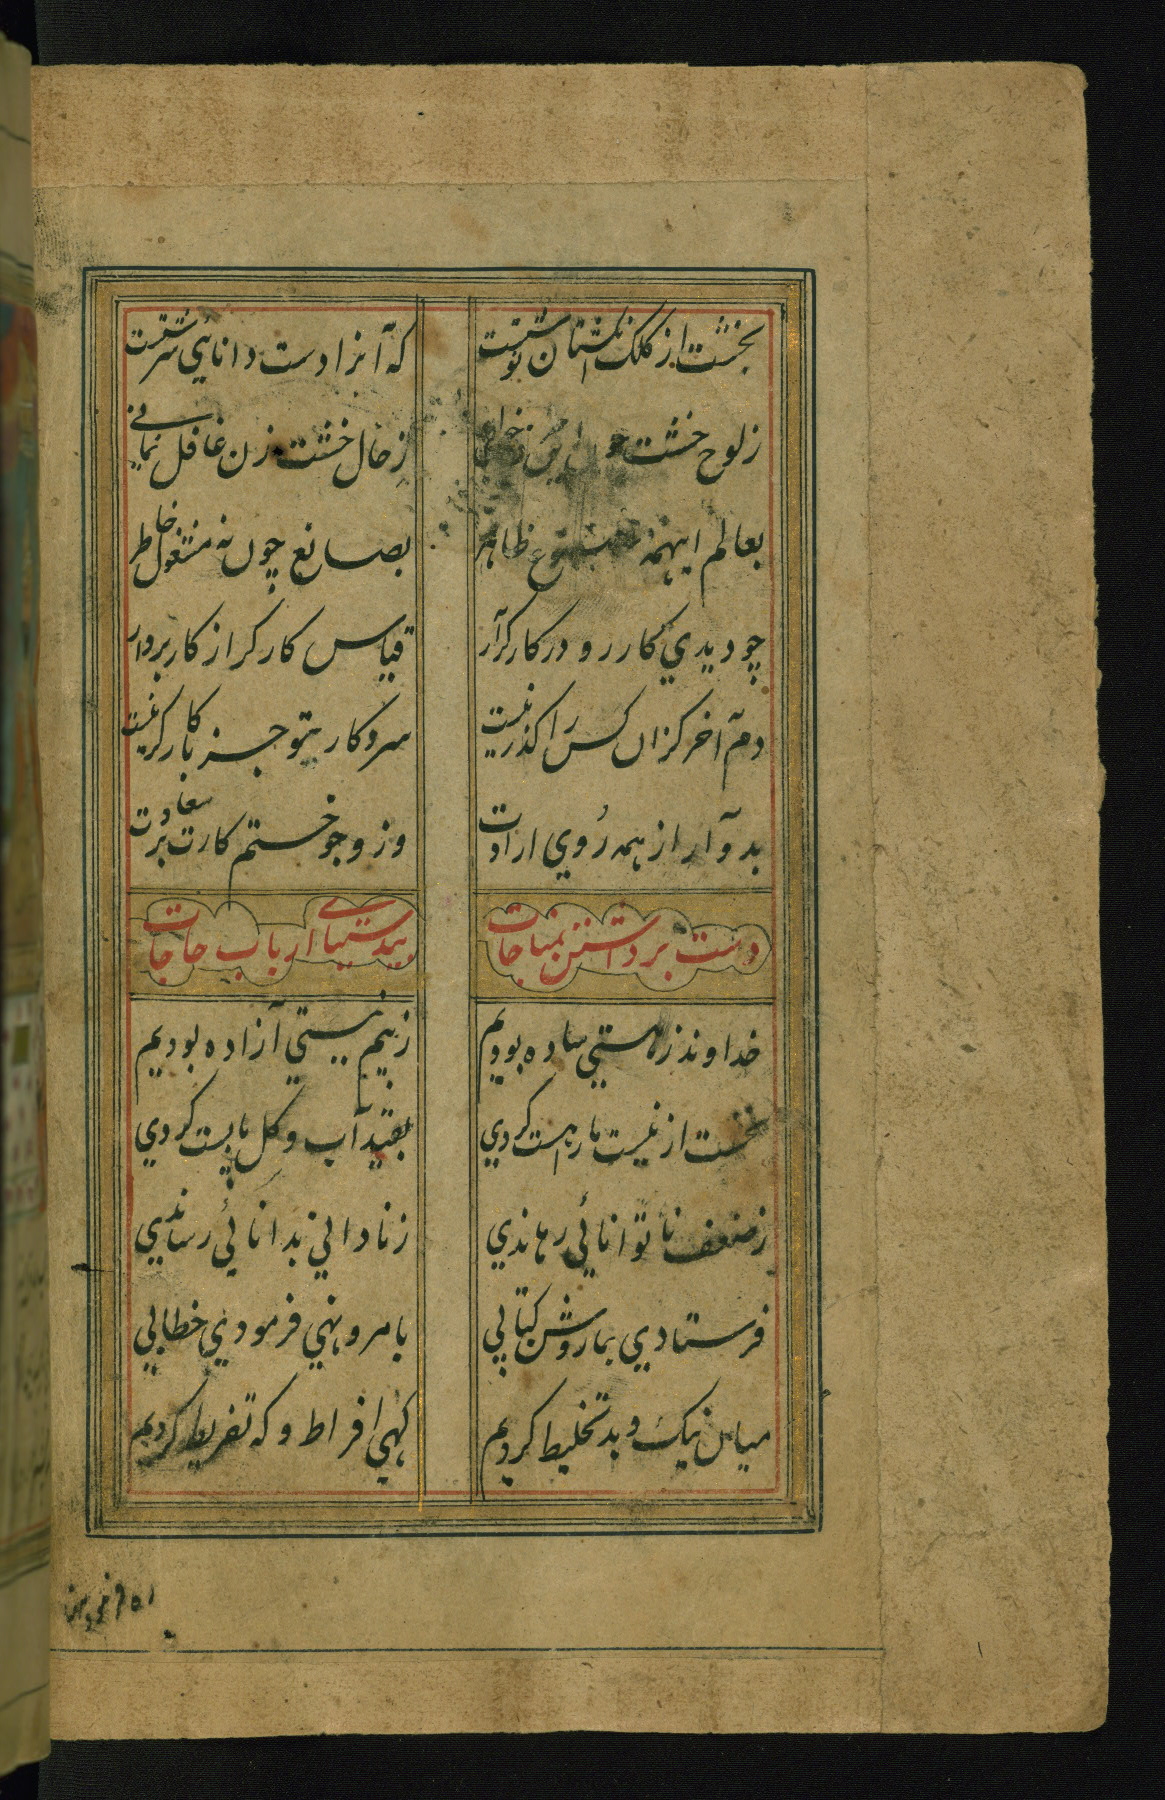 بخشت از کلک انگشتان نوشتست
که آنرا دست دانایی سرشتست
ز لوح خشت چون این حرف خوانی
ز حال خشت زن غافل نمانی
بعالم اینهمه مصنوع ظاهر
بصانع چون نه مشغول خاطر
چو دیدی کار رو در کارگر آر
قیاس کارگر از کار بردار
دم آخر کزان کس را گذر نیست
سر و کار تو جز با کارگر نیست
بدو آر از همه روی ارادت
وز و جو ختم کارت بر سعادت
دست برداشتن بمناجات
بیدستیهای ارباب حاجات
خداوند ز هستی ساده بودیم
ز بیم نیستی آزاده بودیم
نخست از نیست ما را هست کردی
بقید آب و گل پابست کردی
ز ضعف ناتوانائی رهاندی
ز نادانی بدانائی رساندی
فرستادی بما روشن کتابی
بامر و نهی فرمودی خطابی
میان نیک و بد تخلیط کردیم
گهی افراط و گه تفریط کردیم